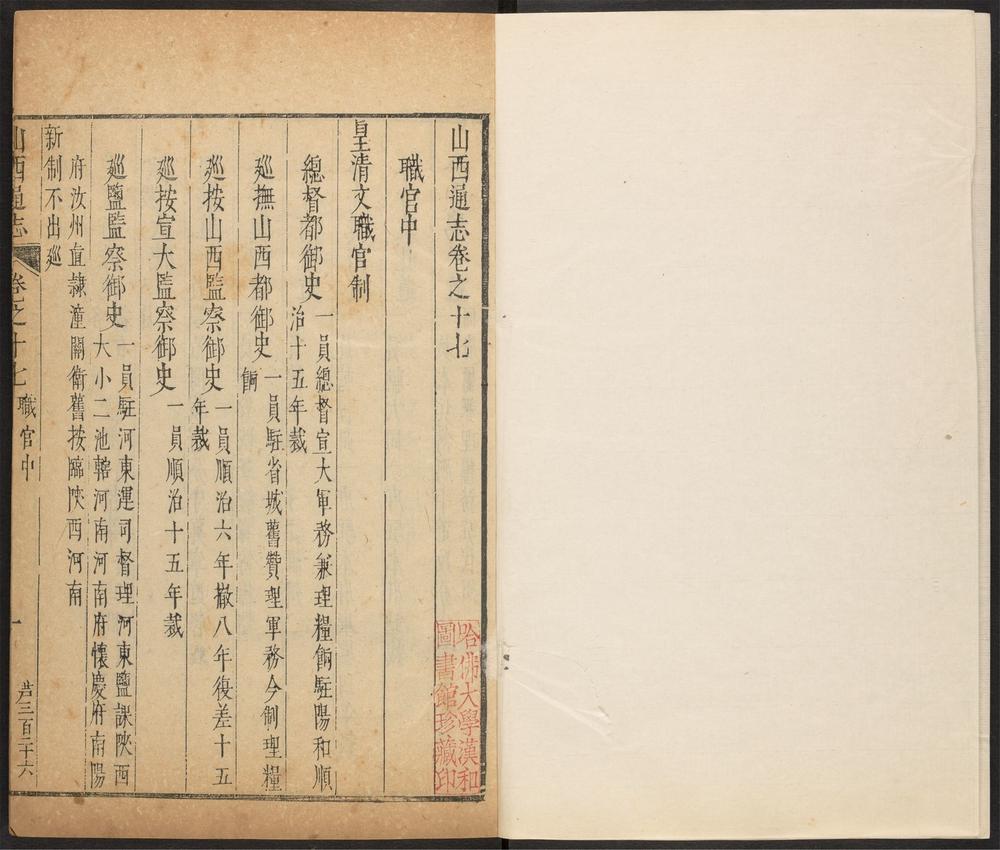 山西通志卷之十七
職官中
皇清文職官制
總督都御史一員總督宣大軍務兼理糧餉駐陽和順
治十五年裁
廵撫山西都御史一員駐省城舊贊理軍務今制理糧
餉
廵按山西監察御史一員順治六年撤八年復差十五
年裁
廵按宣大監察御史一員順治十五年裁
廵鹽監察御史一員駐河東運司督理河東鹽課陝西
大小二池轄河南河南府懷慶府南陽
府汝州直隷潼關衛舊按臨陝西河南
新制不出廵
山西通志
卷之十七
職官中
一
芦三百二十六
哈佛大學漢和
圖書館珍藏印